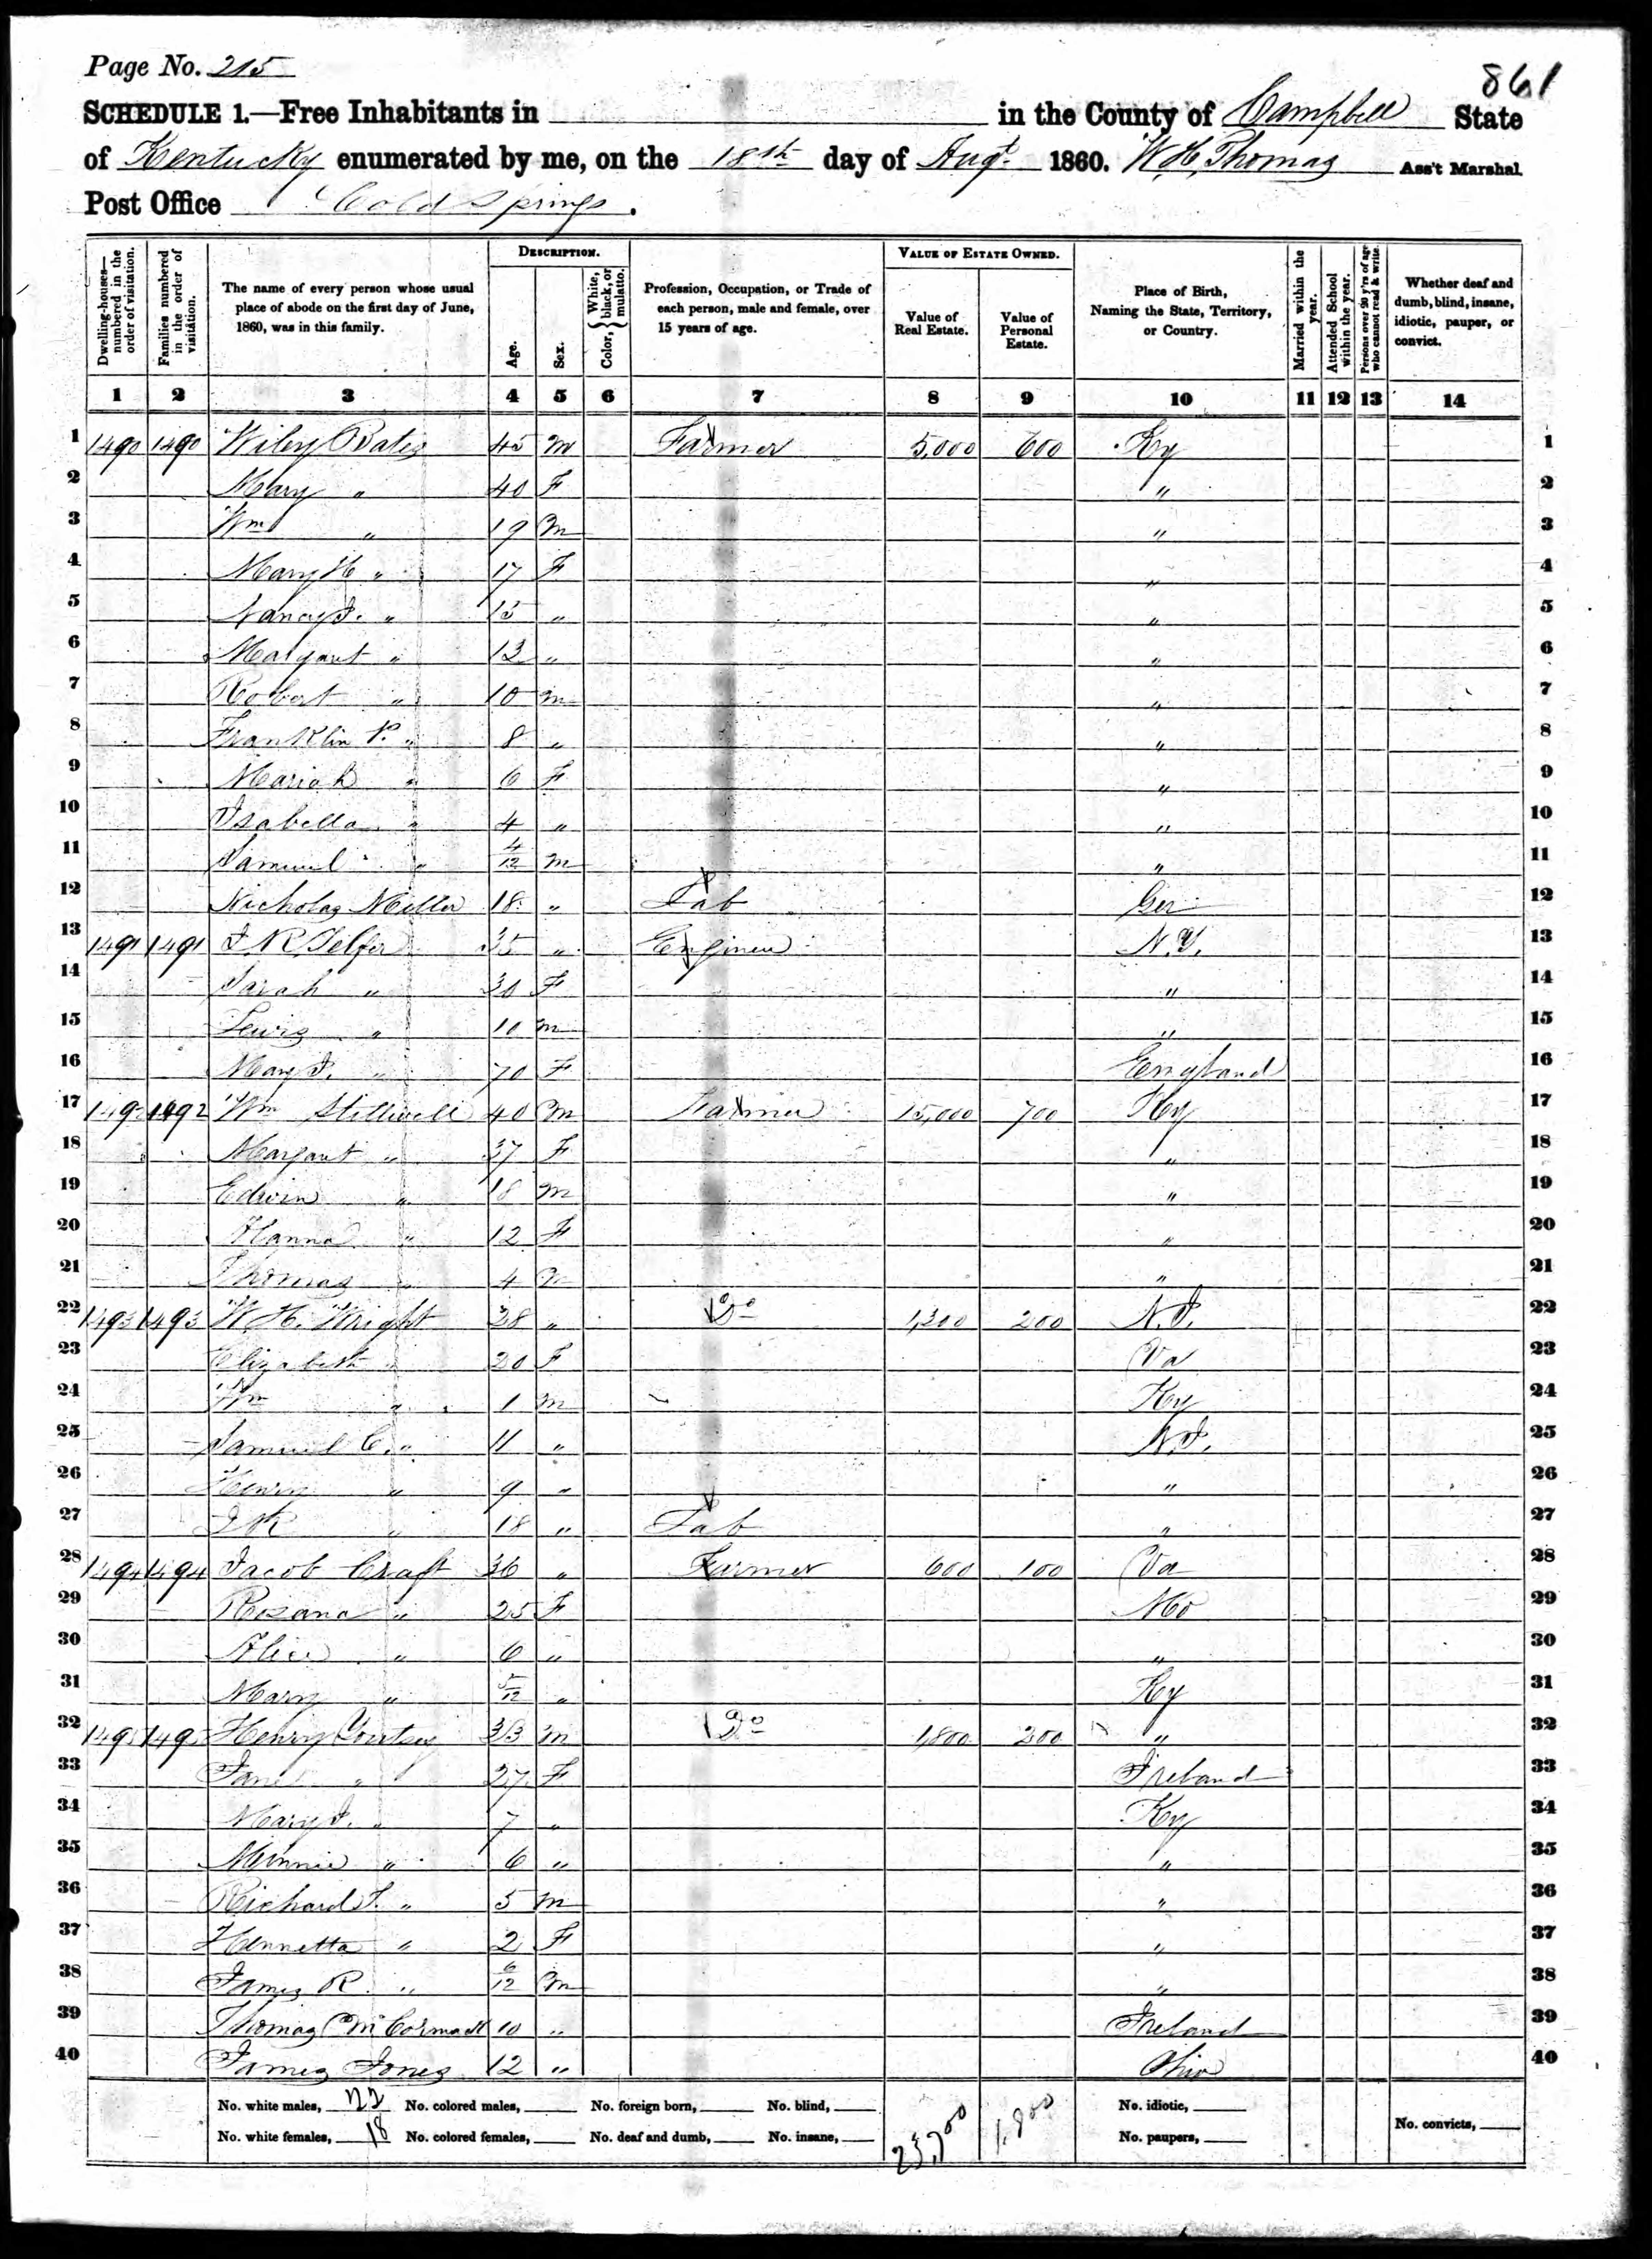 Page No. 215
861
SCHEDULE 1.—Free Inhabitants in in the County of Campbell State
of Kentucky enumerated by me, on the 18th day of Augt 1860. W. H. Thomas Ass't Marshal.
Post Office Cold Springs.
Dwelling-houses—numbered in the order of visitation.
Families numbered in the order of visitation.
The name of every person whose usual place of abode on the first day of June, 1860, was in this family.
DESCRIPTION.
Age.
Sex.
Color, White, black, or mulatto.
Profession, Occupation, or Trade of each person, male and female, over 15 years of age.
VALUE OF ESTATE OWNED.
Value of Real Estate.
Value of Personal Estate.
Place of Birth, Naming the State, Territory, or Country.
Married within the year.
Attended School within the year.
Persons over 20 y'rs of age who cannot read & write.
Whether deaf and dumb, blind, insane, idiotic, pauper, or convict.
1 2 3 4 5 6 7 8 9 10 11 12 13 14
1 1490 1490 Wiley Bates 45 m Farmer 5,000 600 Ky 1
2 Mary " 40 F " 2
3 Wm " 19 m " 3
4 Mary H " 17 F " 4
5 Nancy J. " 15 " " 5
6 Margaret " 13 " " 6
7 Robert " 10 m " 7
8 Franklin P. " 8 " " 8
9 Mariah " 6 F " 9
10 Isabella " 4 " " 10
11 Samuel " 4/12 m " 11
12 Nicholas Miller 18 " Lab Ger 12
13 1491 1491 J. R. Telfer 35 " Engineer N.Y. 13
14 Sarah " 30 F " 14
15 Lewis " 10 m " 15
16 Mary J. " 70 F England 16
17 1492 1492 Wm Stillwell 40 m Farmer 15,000 700 Ky 17
18 Margaret " 37 F " 18
19 Edwin " 18 m " 19
20 Hanna " 12 F " 20
21 Thomas " 4 m " 21
22 1493 1493 W. H. Wright 28 " Do 1,300 200 N.J. 22
23 Elizabeth " 20 F Va 23
24 Wm " 1 m Ky 24
25 Samuel C. " 11 " N.J. 25
26 Henry " 9 " " 26
27 " 18 " Lab " 27
28 1494 1494 Jacob Craft 36 " Farmer 600 100 Va 28
29 Rosana " 25 F Mo 29
30 Alice " 6 " " 30
31 Mary " 5/12 " Ky 31
32 149 149 Henry 33 m Do 1,800 200 " 32
33 Jane " 27 F Ireland 33
34 Mary J. " 7 " Ky 34
35 Minnie " 6 " " 35
36 Richard T. " 5 m " 36
37 Hennetta " 2 F " 37
38 James R. " 6/12 m " 38
39 Thomas McCormack 10 " Ireland 39
40 James Jones 12 " Ohio 40
No. white males, 22 No. colored males, No. foreign born, No. blind, No. idiotic,
No. white females, 18 No. colored females, No. deaf and dumb, No. insane, No. paupers, No. convicts,
23,700 1,800